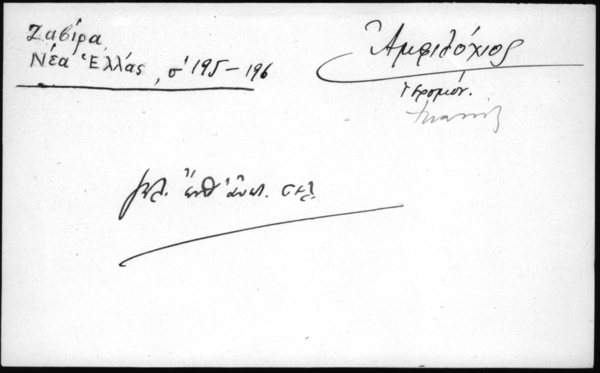 Ζαβίρα,
Νέα Ἑλλάς, σ' 195-196
Ἀμφιλόχιος
ἱερομόν.
βλ. ἀνωτ. σελ.